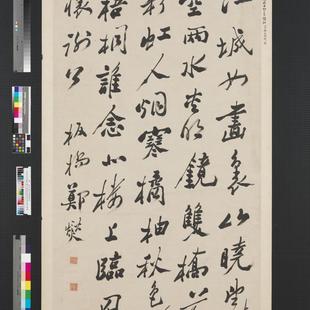 江城如畫裏山曉望
空兩水夾明鏡雙橋落
彩虹人烟寒橘柚秋色
梧桐誰念北樓上臨風
懷謝公 板橋鄭燮